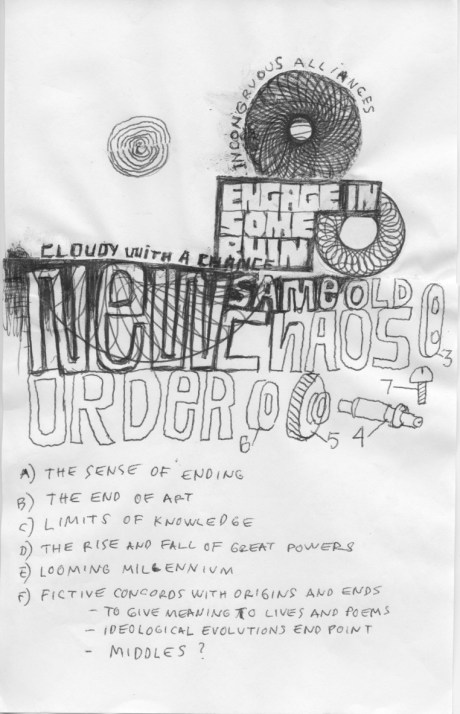 INCONGRUOUS ALLIANCES
ENGAGE IN
SOME
RUIN
CLOUDY WITH A CHANCE
SAME OLD
NEW CHAOS
3
7
ORDER
6
5
4
A) THE SENSE OF ENDING
B) THE END OF ART
C) LIMITS OF KNOWLEDGE
D) THE RISE AND FALL OF GREAT POWERS
E) LOOMING MILLENNIUM
F) FICTIVE CONCORDS WITH ORIGINS AND ENDS
- TO GIVE MEANING TO LIVES AND POEMS
- IDEOLOGICAL EVOLUTIONS END POINT
- MIDDLES ?